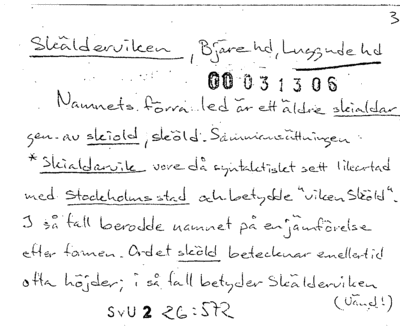 3
Skälderviken, Bjäre hd, Luggude hd
00 031306
Namnets förra led är ett äldre skialdar
gen. av skiold, sköld. Sammansättningen
*Skialdarvik vore då syntaktiskt sett likartad
med Stockholms stad och betydde "viken Sköld".
I så fall berodde namnet på en jämförelse
efter formen. Ordet sköld betecknar emellertid
ofta höjder; i så fall betyder Skälderviken
(Vänd!)
SvU 2 26:572